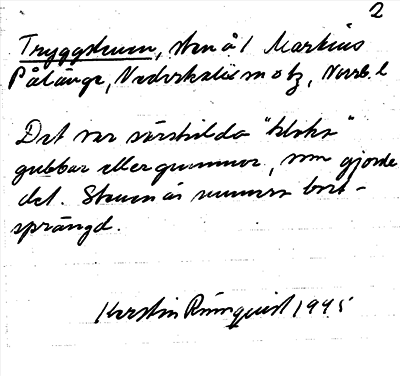 2
Tryggstenen, sten å 1 Markius
Pålänge, Nederkalix sn o tg, Norrb. l
Det var särskilda "kloka"
gubbar eller gummor, som gjorde
det. Stenen är numera bort-
sprängd.
Kerstin Rönnquist 1945